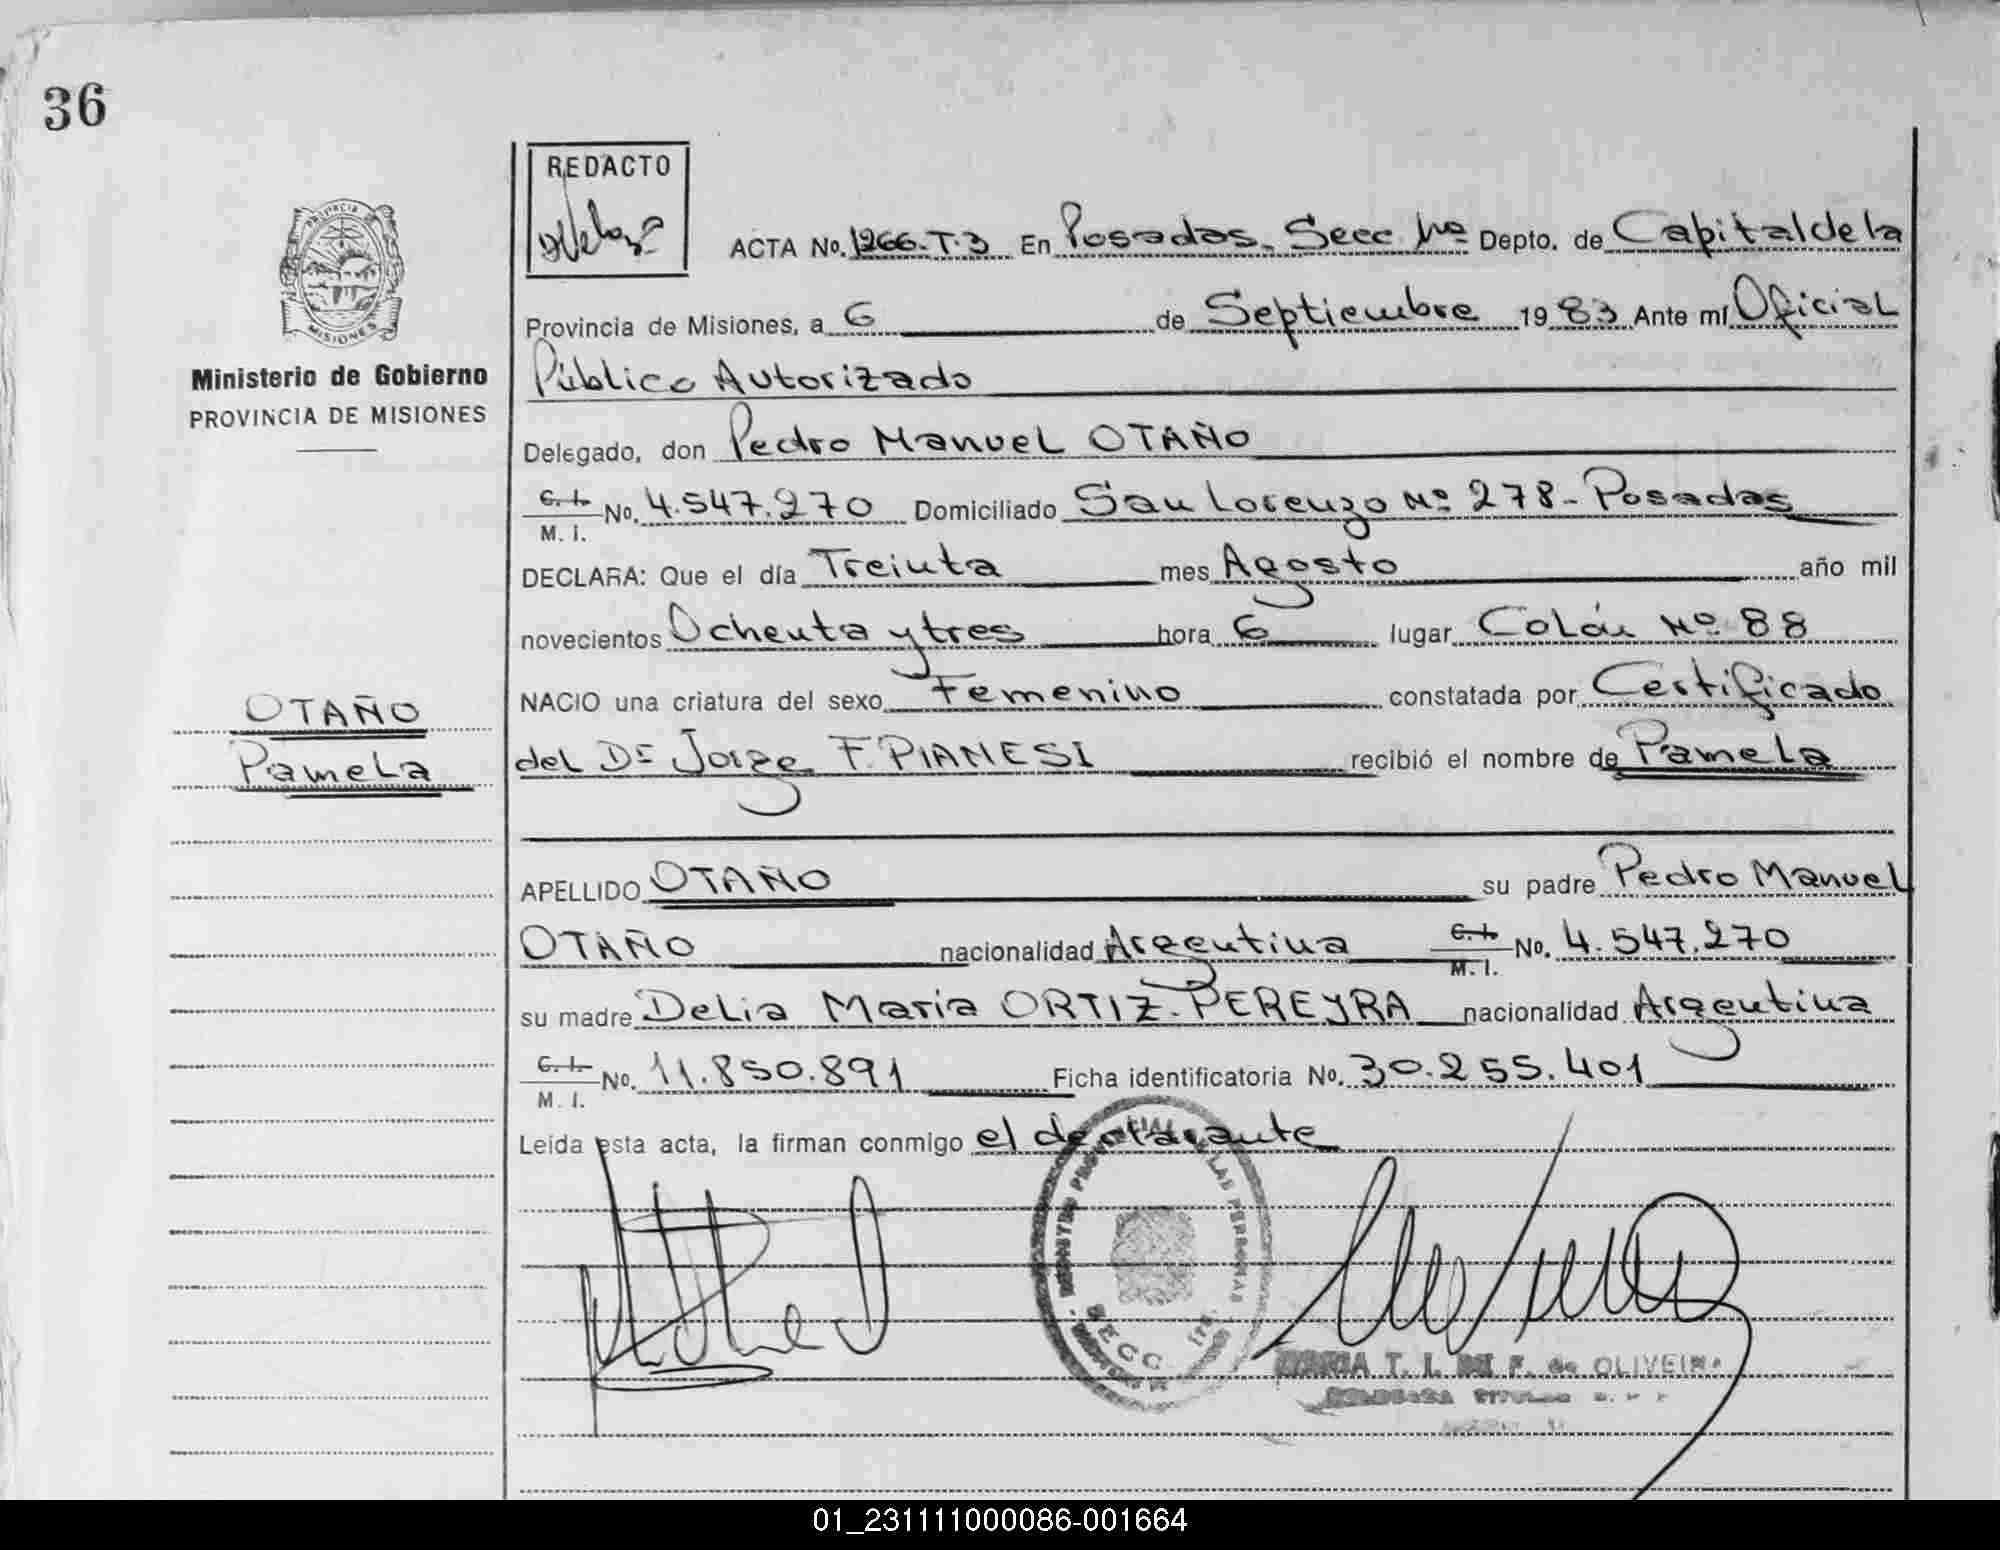 36
REDACTO
PROVINCIA DE
MISIONES
Ministerio de Gobierno
PROVINCIA DE MISIONES
ACTA No. 1266.T.3 En Posadas. Secc 1ra Depto. de Capital de la
Provincia de Misiones, a 6 de Septiembre 1983 Ante mí Oficial
Público Autorizado
Delegado, don Pedro Manuel OTAÑO
C.I. M.I. No. 4.547.270 Domiciliado San Lorenzo Nº 278- Posadas
DECLARA: Que el día Treinta mes Agosto año mil
novecientos Ochenta y tres hora 6 lugar Colón Nº 88
NACIO una criatura del sexo Femenino constatada por Certificado
del Dr Jorge F. PIANESI recibió el nombre de Pamela
OTAÑO
Pamela
APELLIDO OTAÑO su padre Pedro Manuel
OTAÑO nacionalidad Argentina C.I. M.I. No. 4.547.270
su madre Delia Maria ORTIZ-PEREYRA nacionalidad Argentina
C.I. M.I. No. 11.850.891 Ficha identificatoria No. 30.255.401
Leída esta acta, la firman conmigo el declarante
LAS PERSONAS
SECC. 1ra.
T. I. F. de OLIVEIRA
01_231111000086-001664